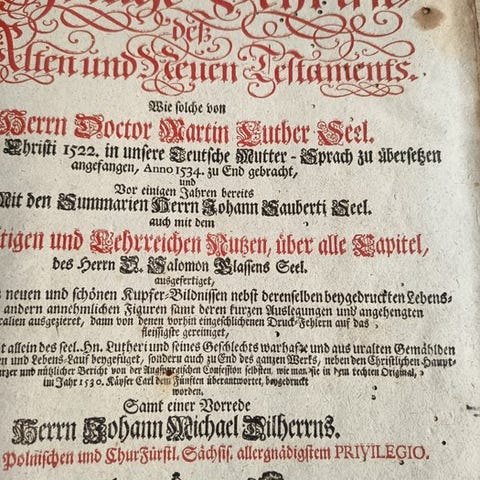 deß
Alten und Neuen Testaments.
Wie solche von
Herrn Doctor Martin Luther Seel.
Christi 1522. in unsere Teutsche Mutter-Sprach zu übersetzen
angefangen, Anno 1534. zu End gebracht,
und
Vor einigen Jahren bereits
Mit den Summarien Herrn Johann Sauberti Seel.
auch mit dem
tigen und Lehrreichen Nutzen, über alle Capitel,
des Herrn D. Salomon Glassens Seel.
ausgefertiget,
neuen und schönen Kupfer-Bildnissen nebst derenselben beygedruckten Lebens-
andern annehmlichen Figuren samt deren kurzen Auslegungen und angehengten
calien ausgezieret, dann von denen vorhin eingeschlichenen Druck-Fehlern auf das
fleissigste gereiniget,
t allein des seel. Hn. Lutheri und seines Geschlechts warhafte und aus uralten Gemählden
en und Lebens-Lauf beygefüget, sondern auch zu End des ganzen Werks, neben den Christlichen Haupt-
urzer und nützlicher Bericht von der Augspurgischen Confession selbsten, wie man sie in dem rechten Original,
im Jahr 1530. Käyser Carl dem Fünften überantwortet, beygedruckt
worden.
Samt einer Vorrede
Herrn Johann Michael Dilherrns.
Polnischen und ChurFürstl. Sächsis. allergnädigstem PRIVILEGIO.